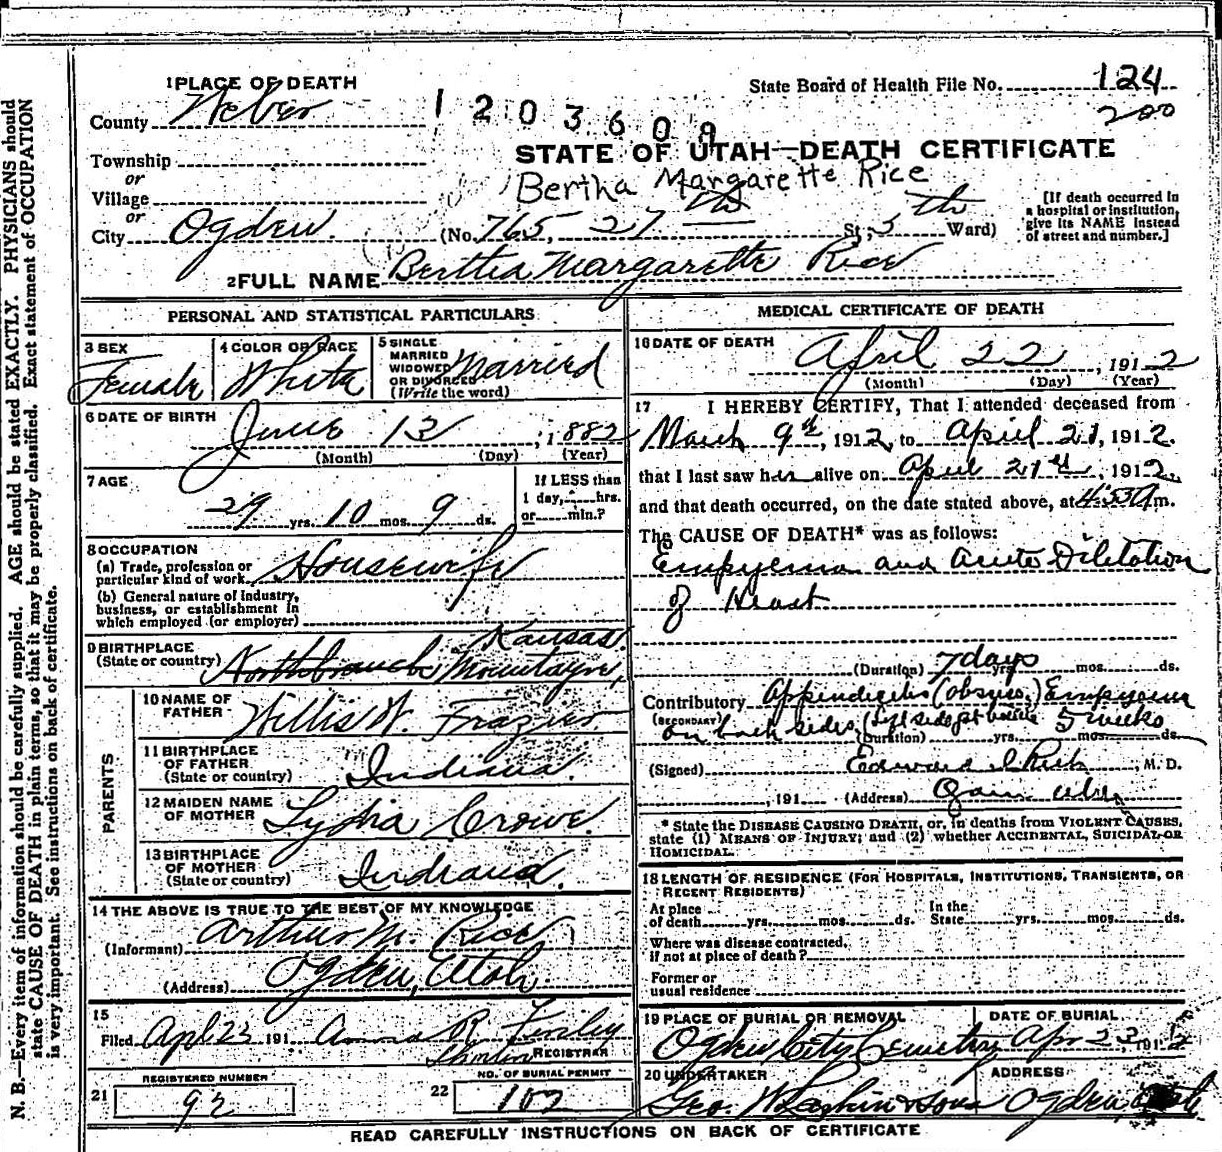 1 PLACE OF DEATH
State Board of Health File No. 124
200
County Weber
1203609
STATE OF UTAH—DEATH CERTIFICATE
Township
or
Village
or
City Ogden.
Bertha Margarette Rice
(No. 765, 27 th St; 5 th Ward)
[If death occurred in a hospital or institution, give its NAME instead of street and number.]
2 FULL NAME Bertha Margarette Rice
PERSONAL AND STATISTICAL PARTICULARS
3 SEX
Female
4 COLOR OR RACE
White
5 SINGLE
MARRIED
WIDOWED
OR DIVORCED
(Write the word)
Married
6 DATE OF BIRTH
June 13, 1882
(Month) (Day) (Year)
7 AGE
29 yrs. 10 mos. 9 ds.
If LESS than
1 day, hrs.
or min.?
8 OCCUPATION
(a) Trade, profession or
particular kind of work Housewife
(b) General nature of industry,
business, or establishment in
which employed (or employer)
9 BIRTHPLACE
(State or country) Northbranch Kansas.
PARENTS
10 NAME OF
FATHER Willis W. Frazier
11 BIRTHPLACE
OF FATHER
(State or country) Indiana.
12 MAIDEN NAME
OF MOTHER Lydia Crowe.
13 BIRTHPLACE
OF MOTHER
(State or country) Indiana.
14 THE ABOVE IS TRUE TO THE BEST OF MY KNOWLEDGE
(Informant) Arthur M. Rice
(Address) Ogden, Utah
15
Filed Apl 23 191 Anna R. Finley
REGISTRAR
REGISTERED NUMBER
21 92
NO. OF BURIAL PERMIT
22 102
MEDICAL CERTIFICATE OF DEATH
16 DATE OF DEATH
April 22, 1912
(Month) (Day) (Year)
17 I HEREBY CERTIFY, That I attended deceased from
March 9th, 1912, to April 21, 1912.
that I last saw her alive on April 21st, 1912,
and that death occurred, on the date stated above, at m.
The CAUSE OF DEATH* was as follows:
Empyema and acute Dilatation
of Heart
(Duration) 7 days yrs. mos. ds.
Contributory Appendicitis Empyema
(SECONDARY)
on both sides 5 weeks
(Duration) yrs. mos. ds.
(Signed) Edward I Rich, M. D.
, 191 (Address) Ogden Utah
* State the DISEASE CAUSING DEATH, or, in deaths from VIOLENT CAUSES,
state (1) MEANS OF INJURY; and (2) whether ACCIDENTAL, SUICIDAL OR
HOMICIDAL.
18 LENGTH OF RESIDENCE (FOR HOSPITALS, INSTITUTIONS, TRANSIENTS, OR
RECENT RESIDENTS)
At place
of death yrs. mos. ds.
In the
State yrs. mos. ds.
Where was disease contracted,
if not at place of death?
Former or
usual residence
19 PLACE OF BURIAL OR REMOVAL
Ogden City Cemetery
DATE OF BURIAL
Apr 23, 1912
20 UNDERTAKER
Geo. W Larkin & Sons
ADDRESS
Ogden,
READ CAREFULLY INSTRUCTIONS ON BACK OF CERTIFICATE
N. B.—Every item of information should be carefully supplied. AGE should be stated EXACTLY. PHYSICIANS should
state CAUSE OF DEATH in plain terms, so that it may be properly classified. Exact statement of OCCUPATION
is very important. See instructions on back of certificate.